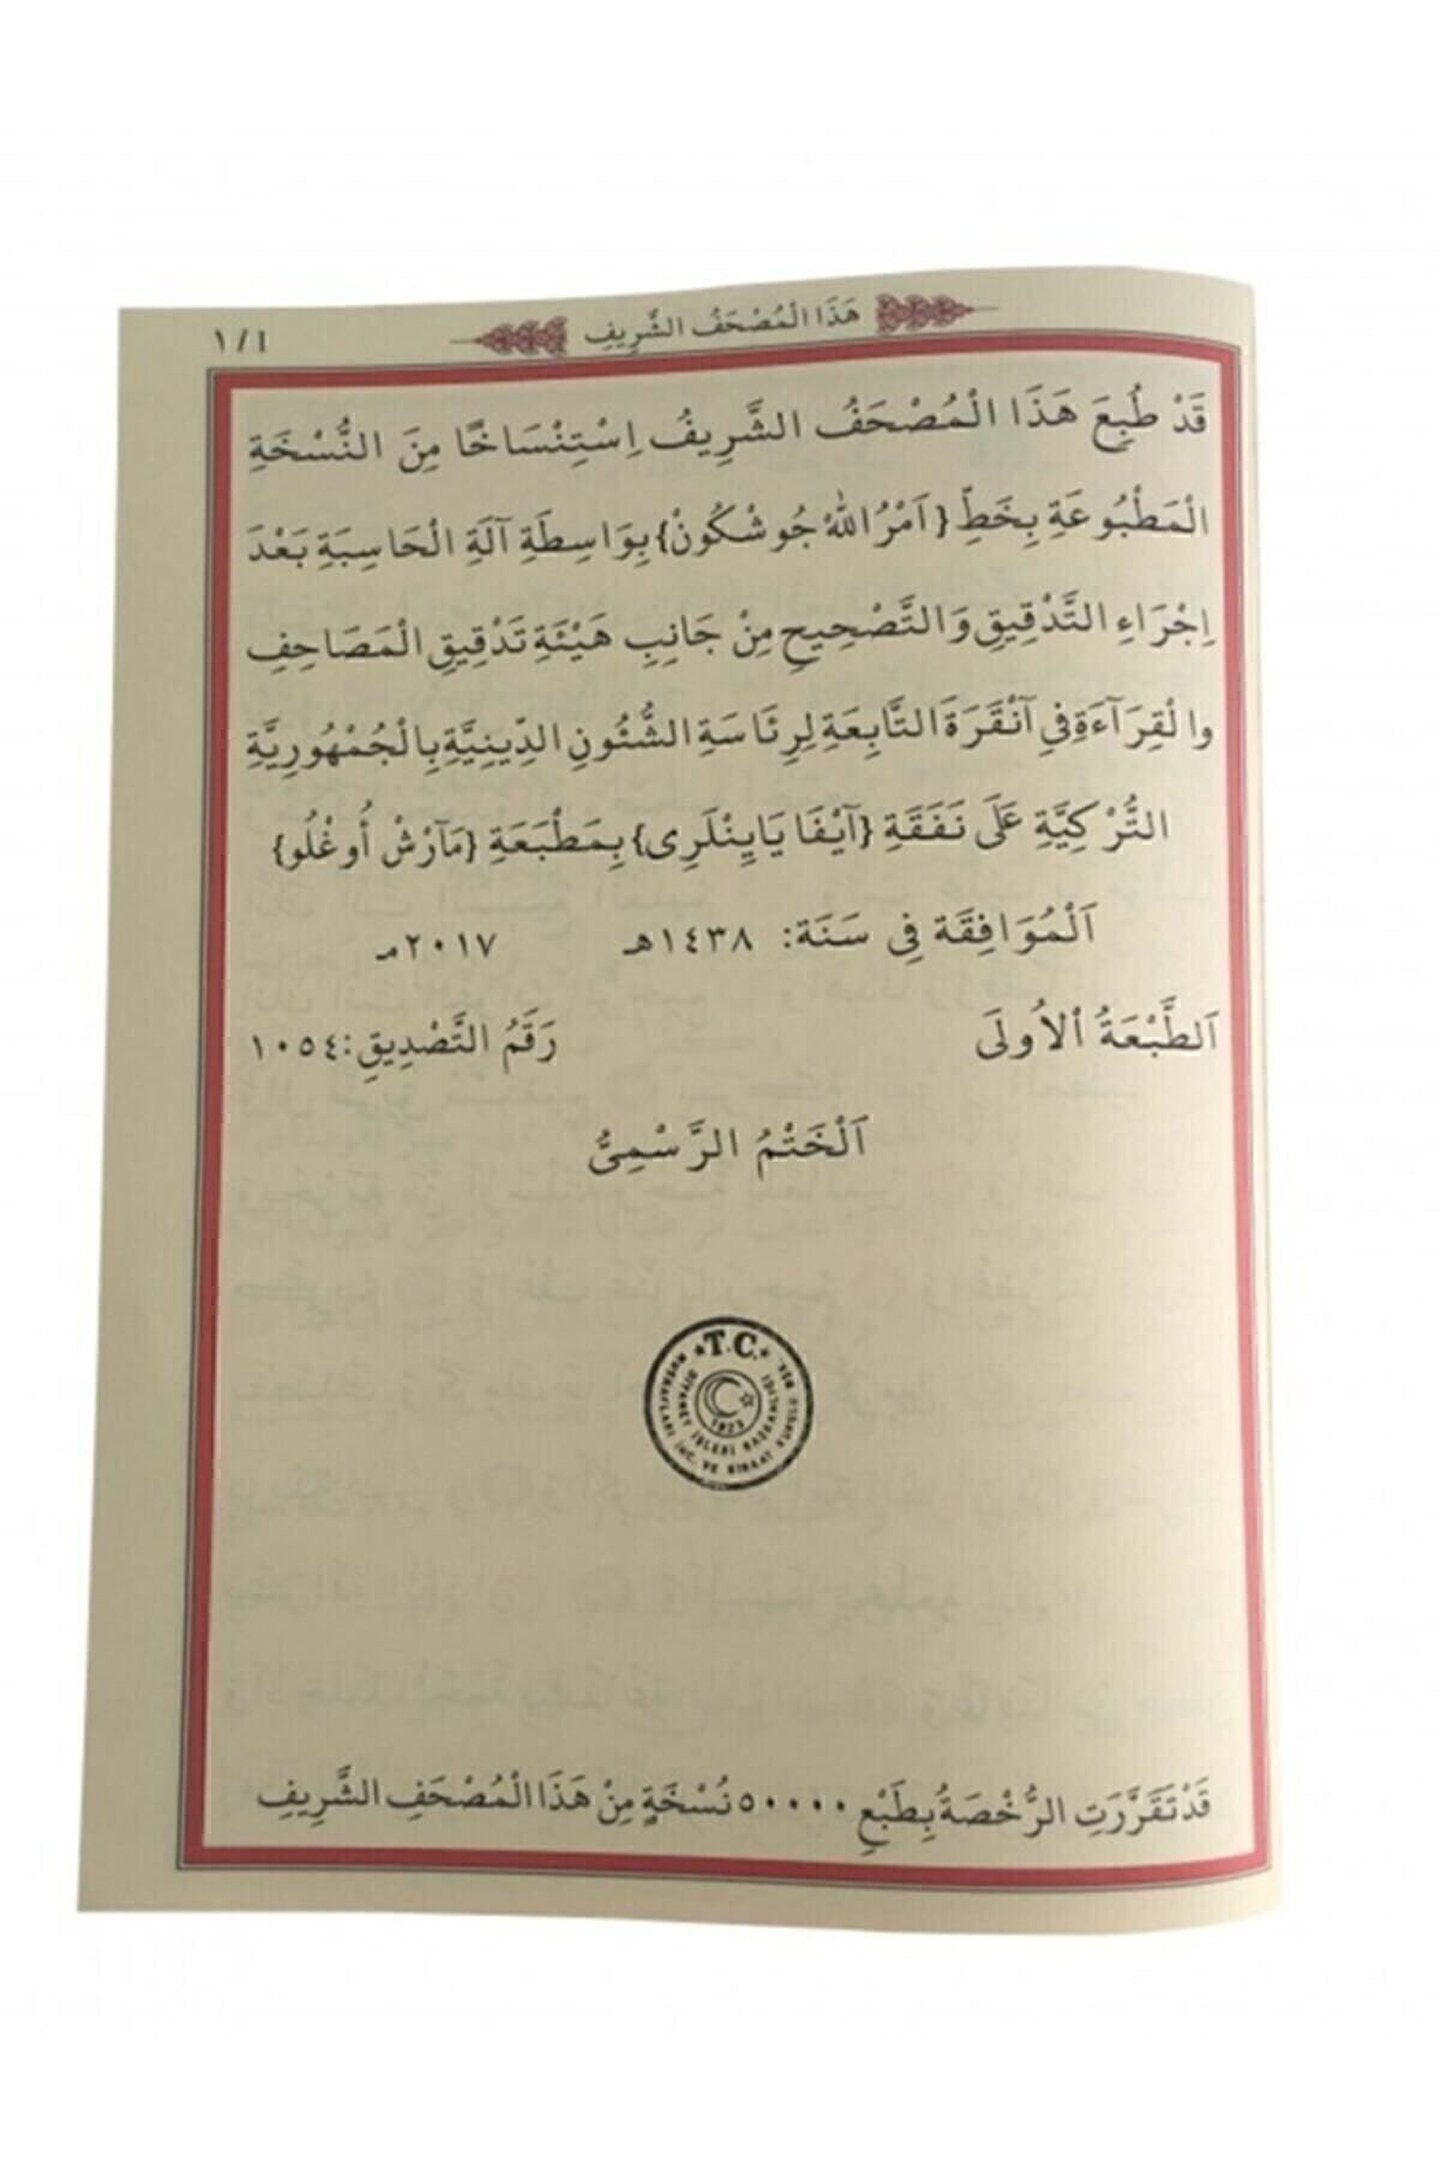 هَذَا الْمُصْحَفُ الشَّرِيفِ
١/١
قَدْ طُبِعَ هَذَا الْمُصْحَفُ الشَّرِيفُ اِسْتِنْسَاخًا مِنَ النُّسْخَةِ
الْمَطْبُوعَةِ بِخَطِّ {اَمْرُ اللّٰهْ جُوشْكُونْ} بِوَاسِطَةِ آلَةِ الْحَاسِبَةِ بَعْدَ
اِجْرَاءِ التَّدْقِيقِ وَالتَّصْحِيحِ مِنْ جَانِبِ هَيْئَةِ تَدْقِيقِ الْمَصَاحِفِ
والْقِرَآءَةِ فِي آنْقَرَةَ التَّابِعَةِ لِرِئَاسَةِ الشُّئُونِ الدِّينِيَّةِ بِالْجُمْهُورِيَّةِ
التُّرْكِيَّةِ عَلَى نَفَقَةِ {آيْفَا يَايِنْلَرِى} بِمَطْبَعَةِ {مَآرْشْ أُوغْلُو}
اَلْمُوَافِقَة فِى سَنَة: ١٤٣٨هـ ٢٠١٧مـ
اَلطَّبْعَةُ ٱلاُولَى رَقَمُ التَّصْدِيقِ: ١٠٥٤
اَلْخَتْمُ الرَّسْمِىُّ
T.C.
DİYANET İŞLERİ BAŞKANLIĞI
MUSHAFLARI İNC. VE KIRAAT KURULU
1923
قَدْ تَقَرَّرَتِ الرُّخْصَةُ بِطَبْعِ ٥٠٠٠٠ نُسْخَةٍ مِنْ هَذَا الْمُصْحَفِ الشَّرِيفِ